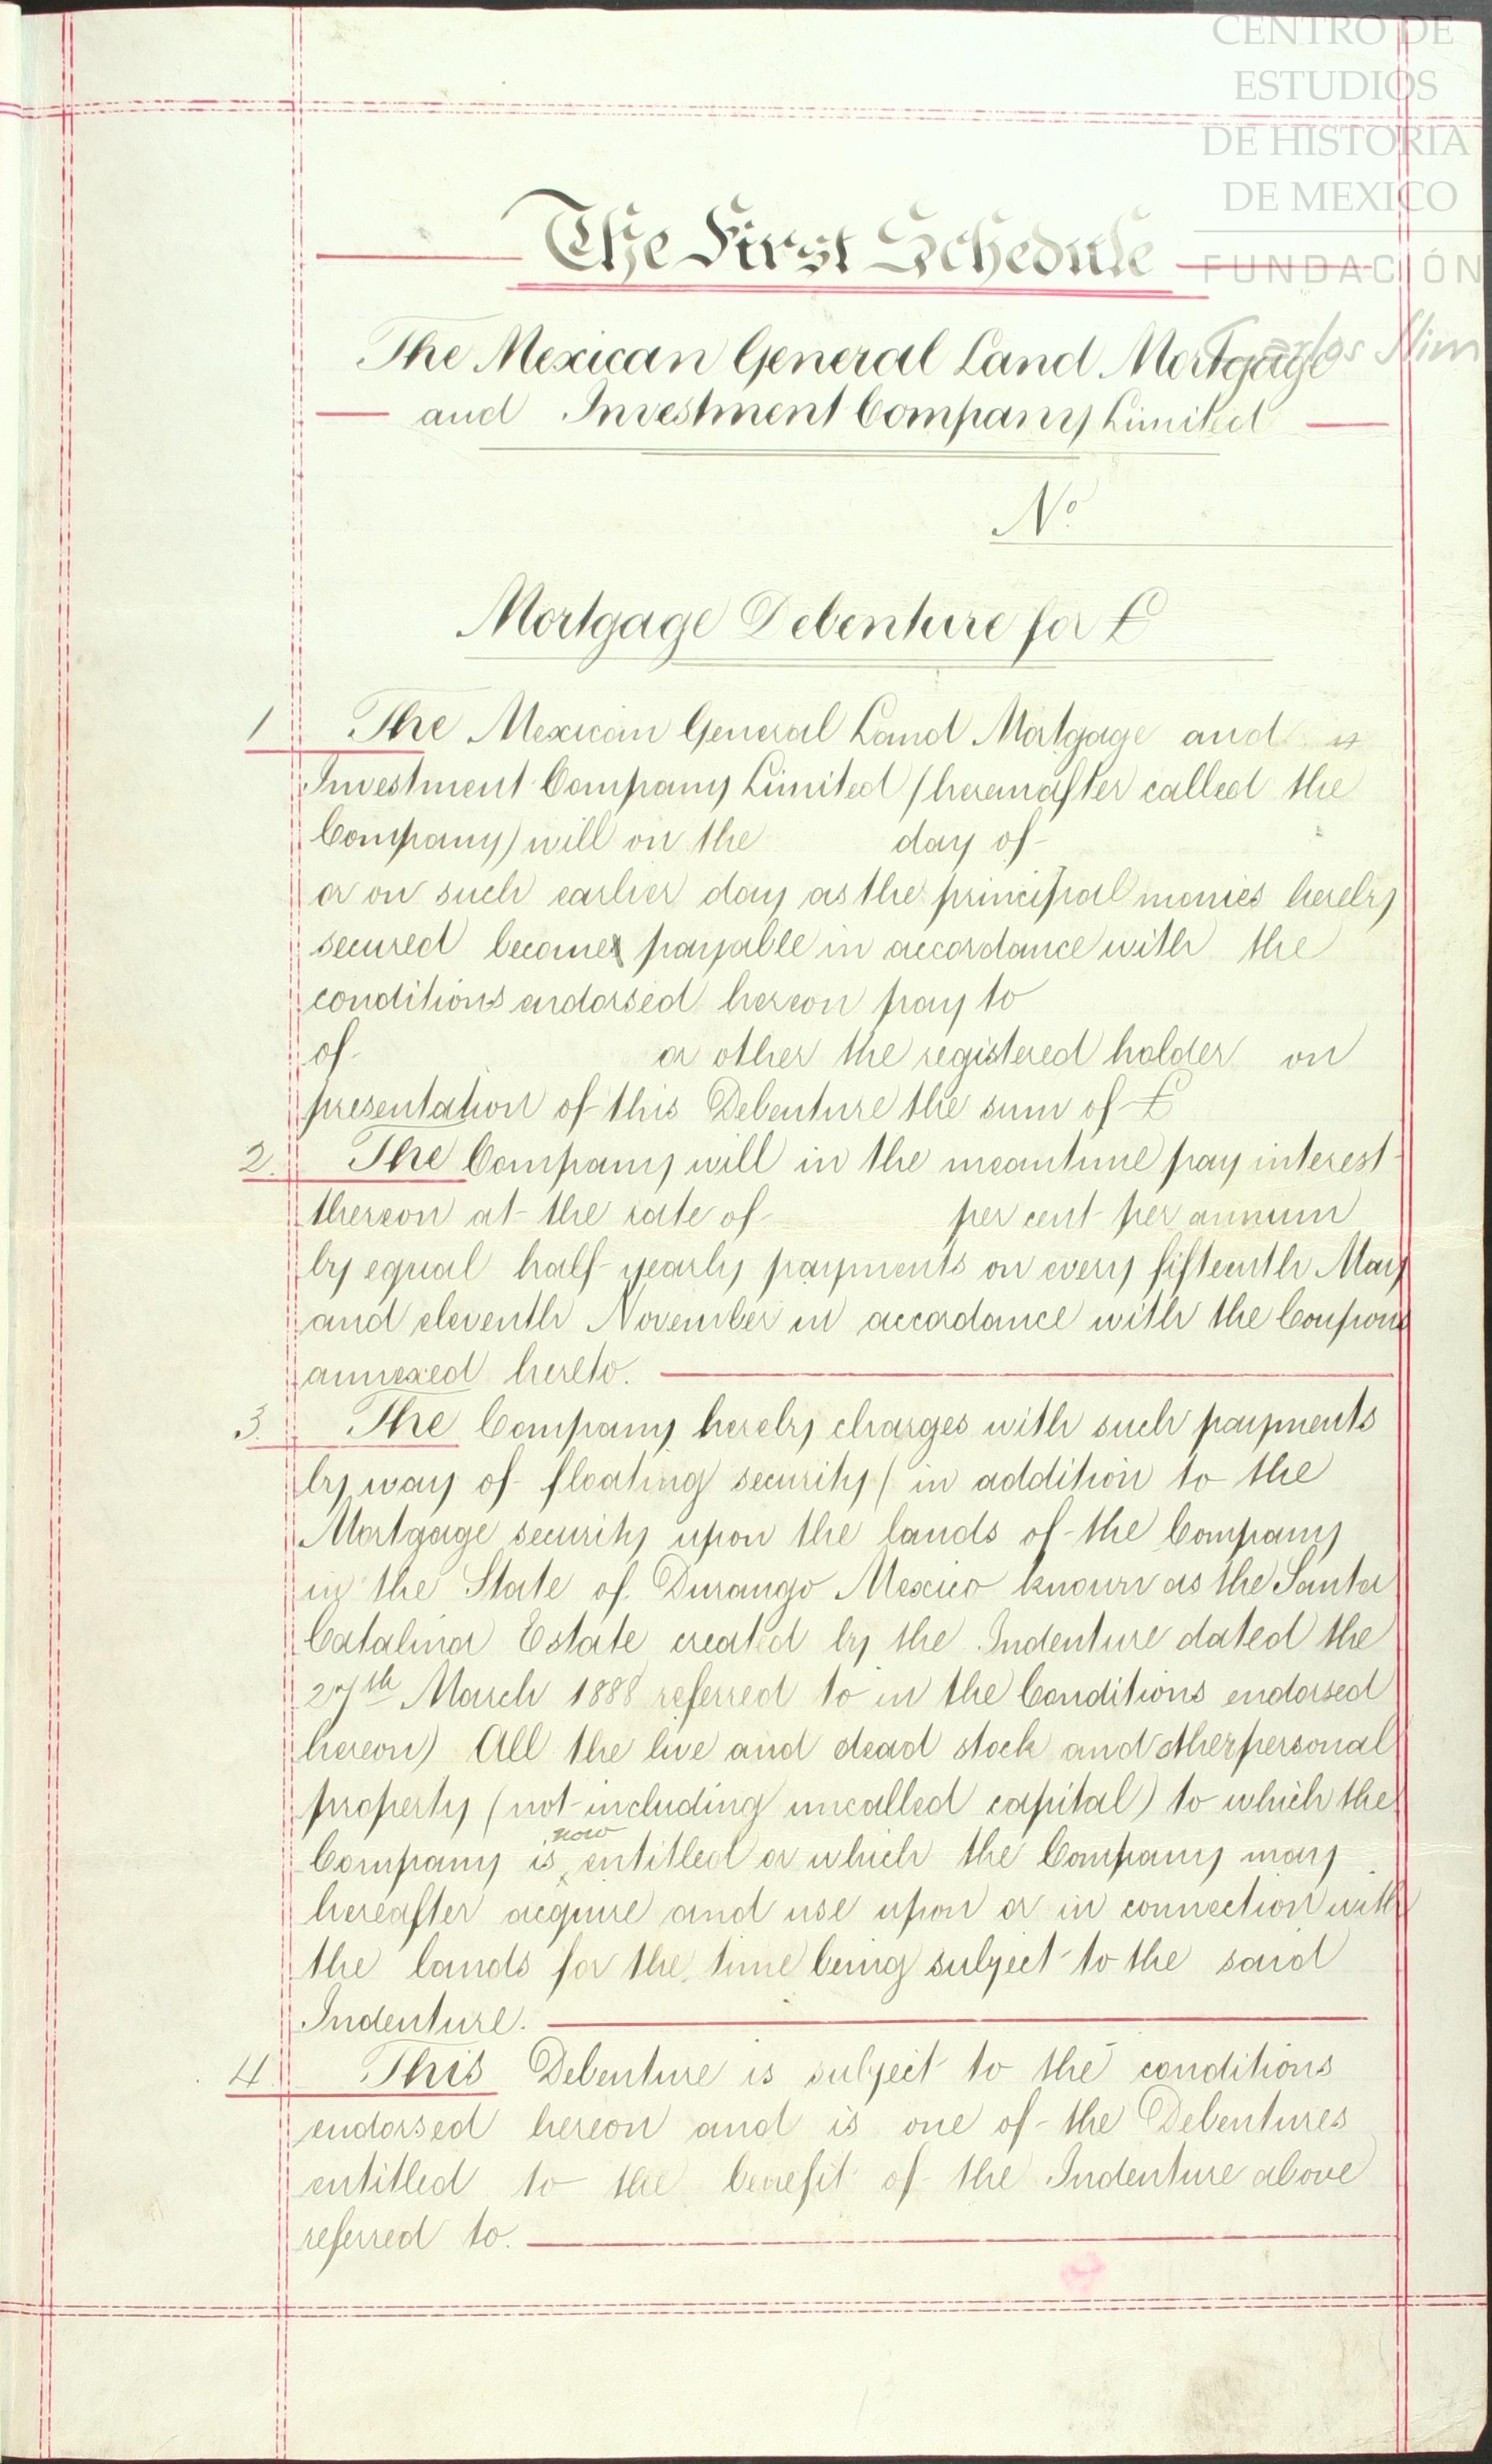 CENTRO DE
ESTUDIOS
DE HISTORIA
DE MEXICO
FUNDACIÓN
Carlos Slim
The First Schedule
The Mexican General Land Mortgage
and Investment Company Limited
No
Mortgage Debenture for £
1 The Mexican General Land Mortgage and
Investment Company Limited (hereinafter called the
Company) will on the day of
or on such earlier day as the principal monies hereby
secured become payable in accordance with the
conditions endorsed hereon pay to
of or other the registered holder on
presentation of this Debenture the sum of £
2. The Company will in the meantime pay interest
thereon at the rate of per cent per annum
by equal half yearly payments on every fifteenth May
and eleventh November in accordance with the Coupons
annexed hereto.
3. The Company hereby charges with such payments
by way of floating security (in addition to the
Mortgage security upon the lands of the Company
in the State of Durango Mexico known as the Santa
Catalina Estate created by the Indenture dated the
27th March 1888 referred to in the Conditions endorsed
hereon) All the live and dead stock and other personal
property (not including uncalled capital) to which the
Company is now entitled or which the Company may
hereafter acquire and use upon or in connection with
the lands for the time being subject to the said
Indenture.
4. This Debenture is subject to the conditions
endorsed hereon and is one of the Debentures
entitled to the benefit of the Indenture above
referred to.